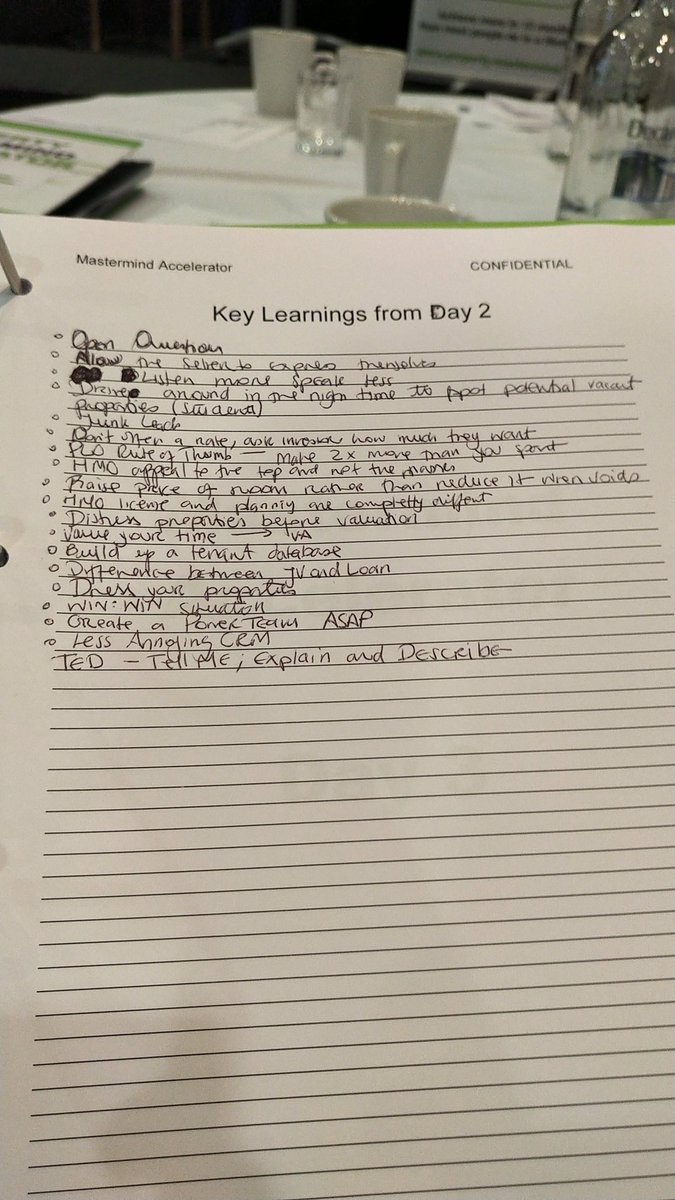 Mastermind Accelerator
CONFIDENTIAL
Key Learnings from Day 2
Open Question
Allow the sellers to express themselves
Listen more speak less
around in the night time to spot potential vacant
properties (students)
Junk Leads
Don't offer a rate, ask investor how much they want
Rule of Thumb — Make 2x more than you spent
HMO appeal to the top and not the
Raise price of room rather than reduce it when voids
HMO license and planning are completly diffent
Distress properties before valuation
Value your time → VA
Build up a tenant database
Difference between JV and Loan
Dress your properties
WIN:WIN situation
Create a Power Team ASAP
Less Annoying CRM
TED - Tell ME; Explain and Describe